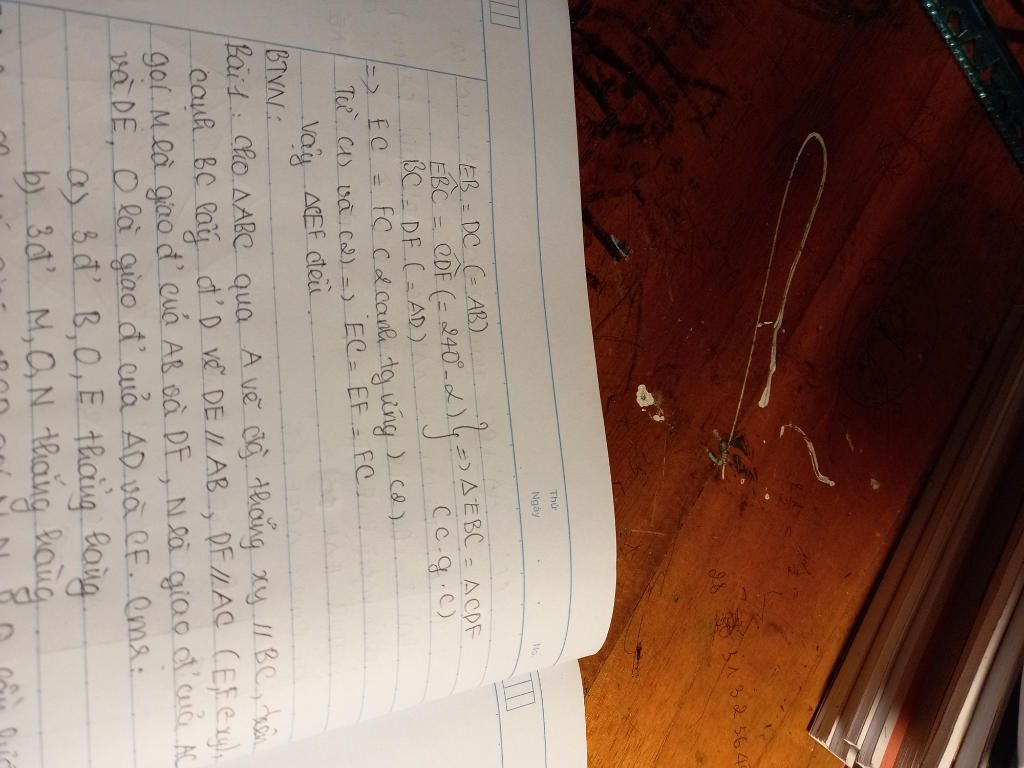 Thứ
Ngày
No
EB = DC (= AB)
EBC = CDF (= 240° - α) } => ΔEBC = ΔCDF
BC = DF (= AD)
(c.g.c)
=> EC = FC (2 cạnh tg ứng) (2)
Từ (1) và (2) => EC = EF = FC
Vậy ΔCEF đều.
BTVN:
Bài 1: Cho ΔABC qua A vẽ đg thẳng xy // BC, trên
cạnh BC lấy đ' D vẽ DE // AB, DF // AC (E,F ∈ xy),
gọi M là giao đ' của AB và DF, N là giao đ' của AC
và DE, O là giao đ' của AD và CF. Cmr:
a) 3 đ' B, O, E thẳng hàng
b) 3 đ' M, O, N thẳng hàng